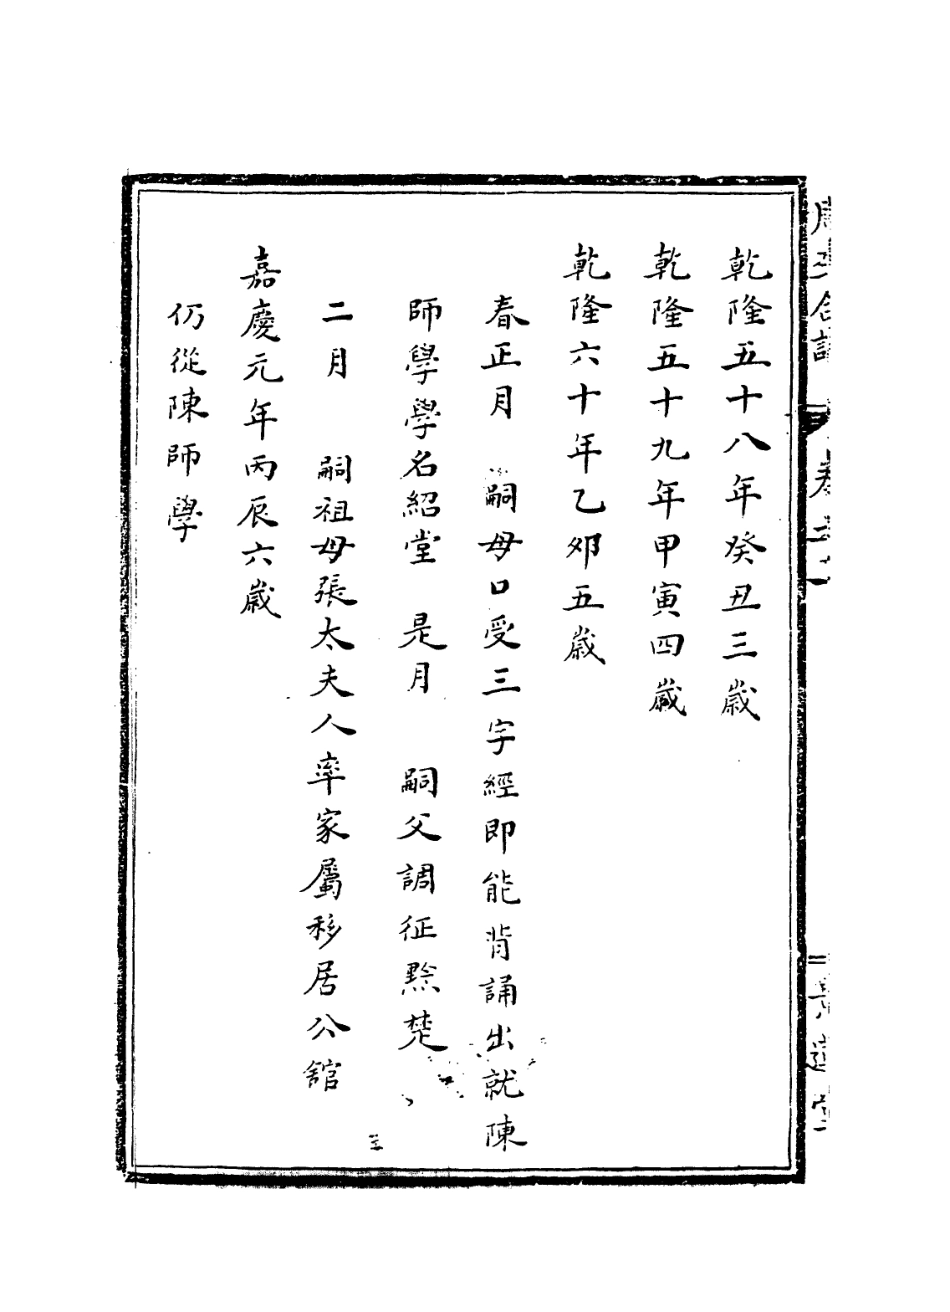 乾隆五十八年癸丑三歲
乾隆五十九年甲寅四歲
乾隆六十年乙夘五歲
春正月　嗣母口受三字經即能背誦出就陳
師學學名紹堂　是月　嗣父調征黔楚
二月　嗣祖母張太夫人率家屬移居公舘
嘉慶元年丙辰六歲
仍從陳師學
三